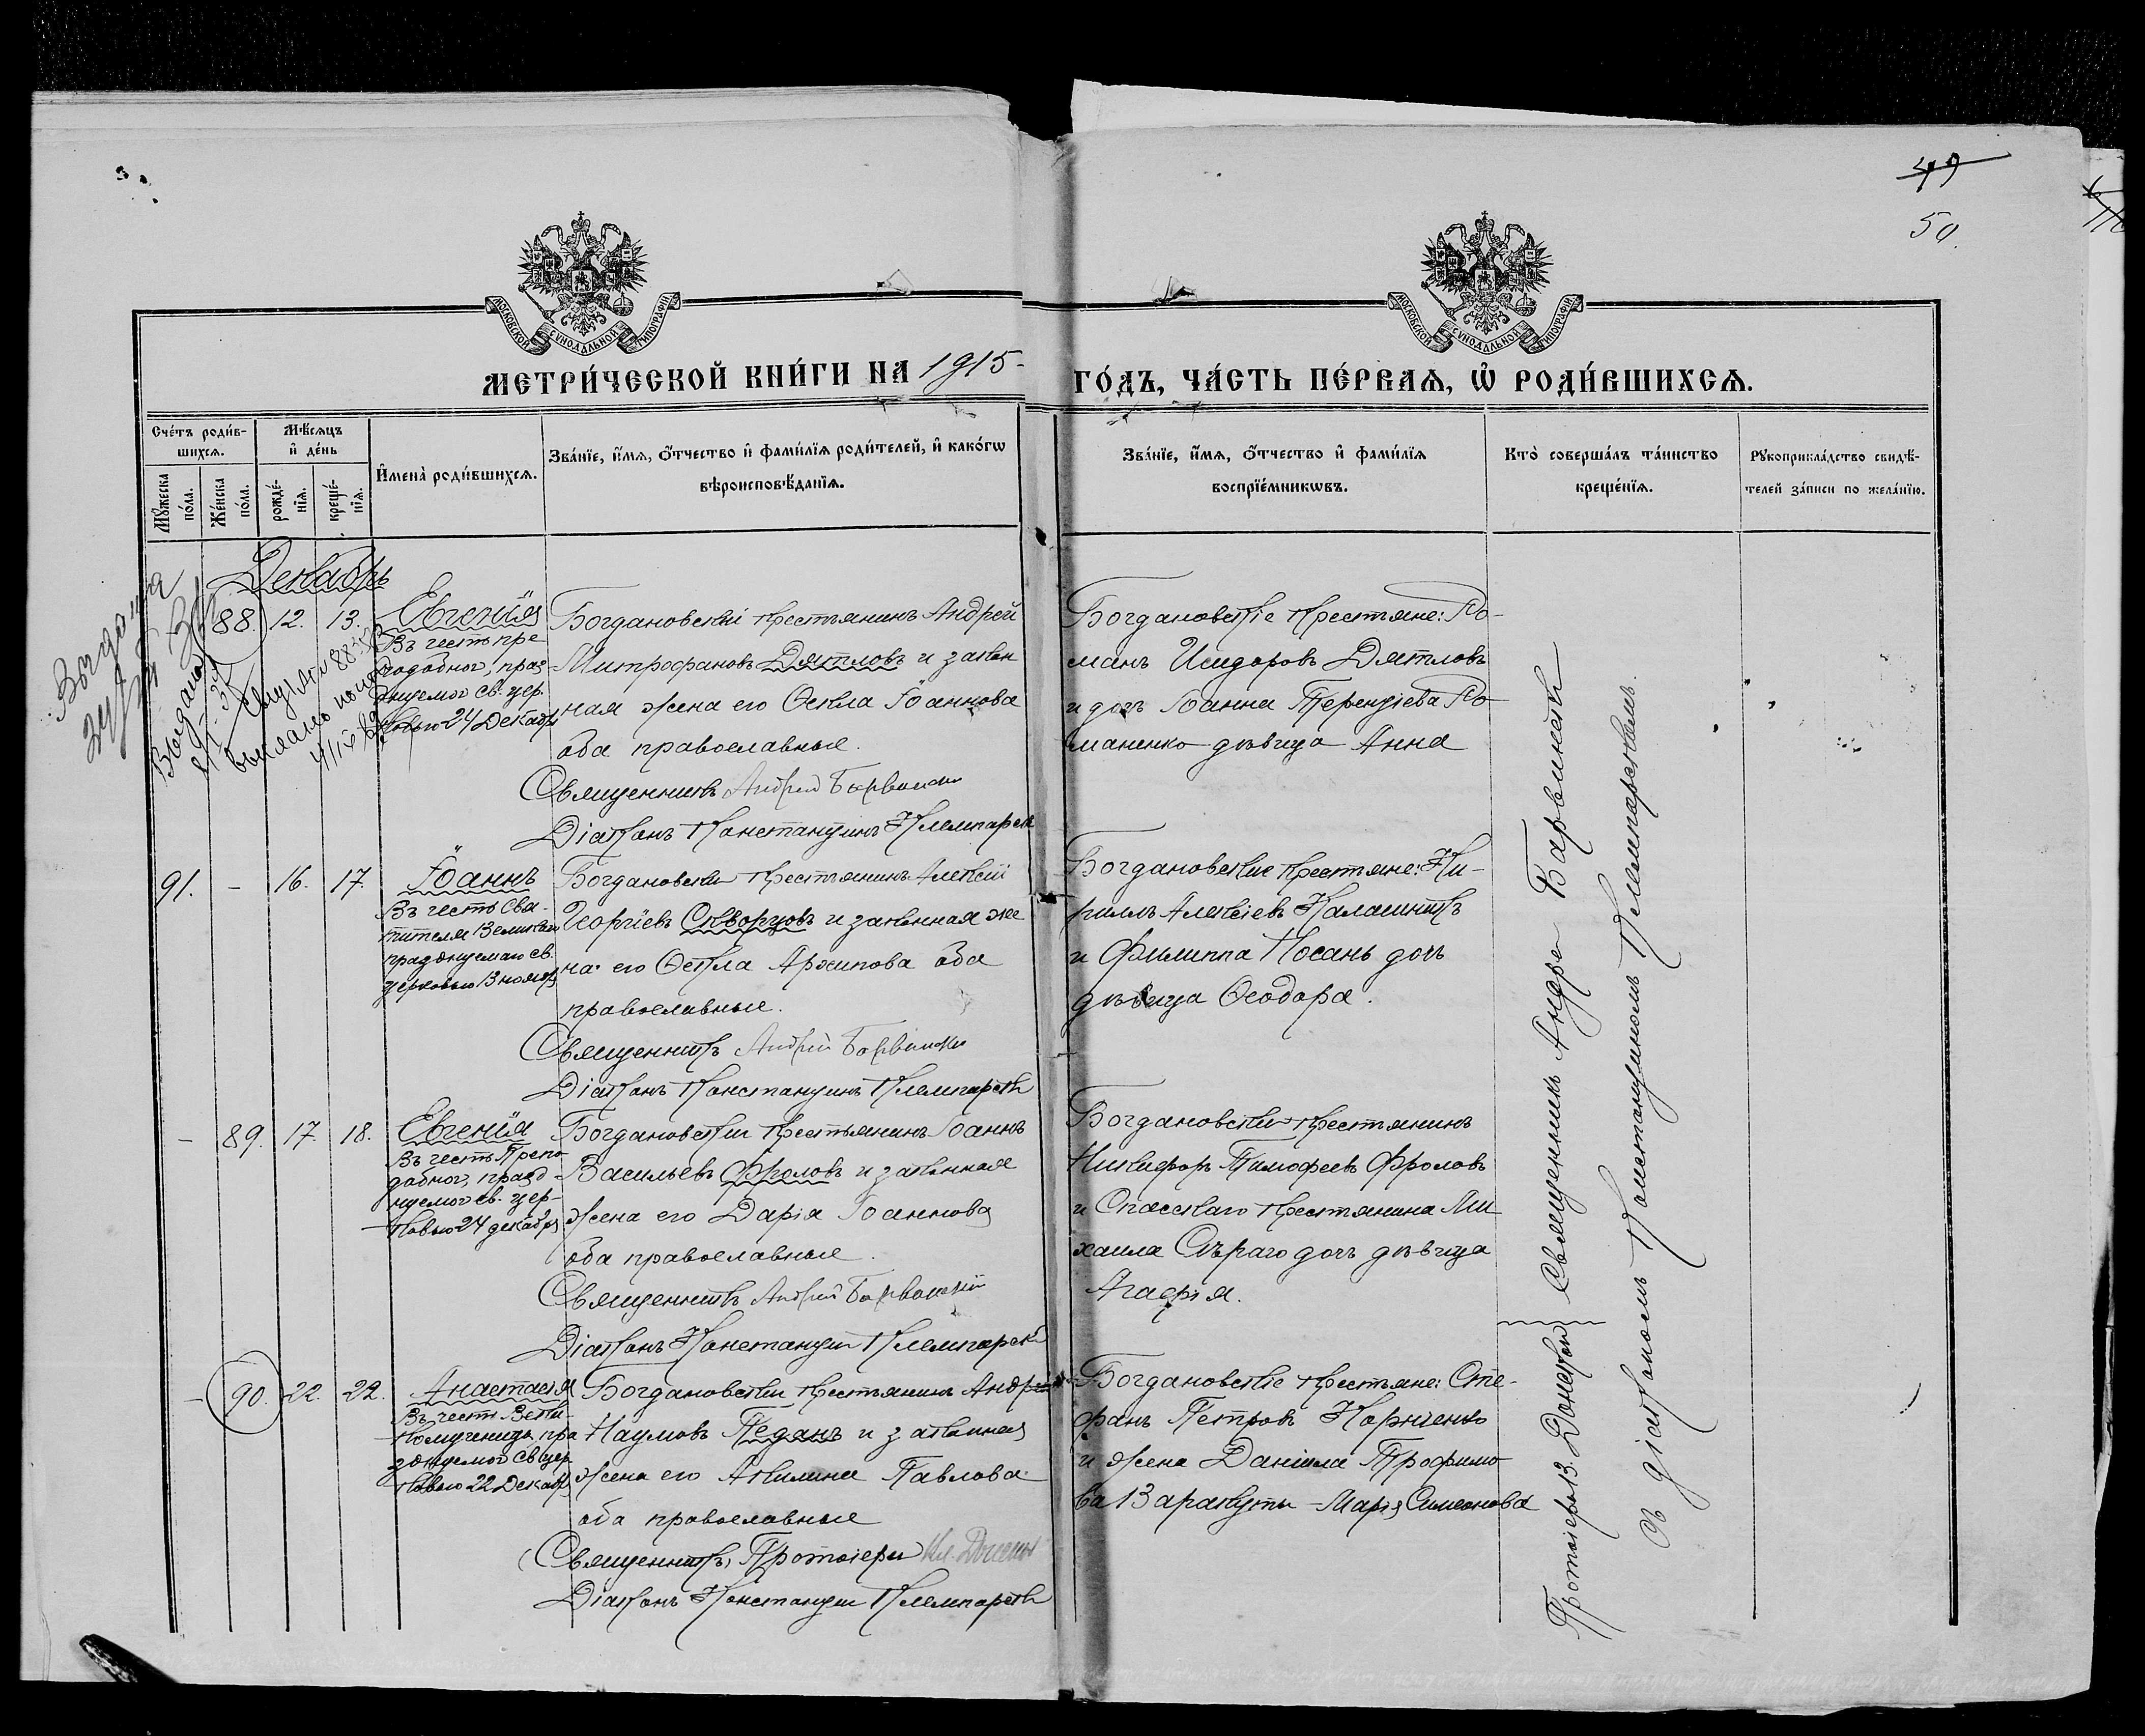 49
50.
МОСКОВСКОЙ СѴНОДАЛЬНОЙ ТИПОГРАФІИ
МОСКОВСКОЙ СѴНОДАЛЬНОЙ ТИПОГРАФІИ
МЕТРИ́ЧЕСКОЙ КНИ́ГИ НА 1915-
ГО́ДЪ, ЧА́СТЬ ПЕ́РВАѦ, Ѽ РОДИ́ВШИХСѦ.
Счетъ роди́в-
шихсѧ.
Мѣ́сѧцъ
и҆ де́нь
Му́жеска
по́ла.
Же́нска
по́ла.
рожде́-
нїѧ.
креще́-
нїѧ.
И҆мена̀ роди́вшихсѧ.
Зва́нїе, и҆́мѧ, ѻ҆́тчество и҆ фами́лїѧ роди́телей, и҆ како́гѡ
вѣроисповѣ́данїѧ.
Зва́нїе, и҆́мѧ, ѻ҆́тчество и҆ фами́лїѧ
воспрїе́мникѡвъ.
Кто̀ соверша́лъ та́инство
креще́нїѧ.
Рукоприкла́дство свидѣ́-
телей за́писи по жела́нїю.
Декабрь
88. 12. 13.
Евгенія
Въ честь пре
подобног, праз
днуемог св. цер.
ковью 24 Декабр
Богдановскі крестьянинъ Андрей
Митрофановъ Дятловъ и закон
ная жена его Ѳекла Іоаннова
оба православные.
Священникъ Андрей Барвинскі
Діаконъ Константинъ Клемпарск
Богдановскіе крестьяне: Ро-
манъ Исидоровъ Дятловъ
и дочь Іоанна Терентіева Ро-
маненко дѣвица Анна
91. - 16. 17.
Іоаннъ
Въ честь Свя-
тителя
празднуемаго св.
церковью 13 ноябр
Богдановскі крестьянинъ Алексій
Георгіевъ Скворцовъ и законная же
на его Ѳекла Архипова оба
православные.
Священникъ Андрей Барвинскі
Діаконъ Константинъ Клемпарскі
Богдановскіе крестьяне: Ки-
риллъ Алексіевъ Калашникъ
и Филиппа Носань дочь
дѣвица Ѳеодора.
- 89. 17. 18.
Евгенія
Въ честь Препо
добног, празд-
нуемог св. цер-
ковью 24 декабр
Богдановскій крестьянинъ Іоаннъ
Васильевъ Фроловъ и законная
жена его Дарія Іоаннова
оба православные.
Священникъ Андрей Барвинскій
Діаконъ Константин Клемпарскі
Богдановскій крестьянинъ
Никифоръ Тимофеевъ Фроловъ
и Спасскаго крестьянина Ми
хаила Сѣраго дочь дѣвица
Агафія.
- 90. 22. 22.
Анастасія
Въ честь Вели-
комученицы, пра
зднуемой св цер
ковью 22 Декабр
Богдановскій крестьянинъ Андрей
Наумовъ Педанъ и законная
жена его Акилина Павлова
оба православные
(Священникъ) Протоіерей Донецкі
Діаконъ Константин Клемпарскі
Богдановскіе крестьяне: Сте-
фанъ Петровъ Корніенко
и жена Даніила Трофимо
ва Заракуты - Марія Симеонова
Священникъ Андрей Барвинскій
Протоіерей Донецкій
съ діакономъ Константиномъ Клемпарскимъ.